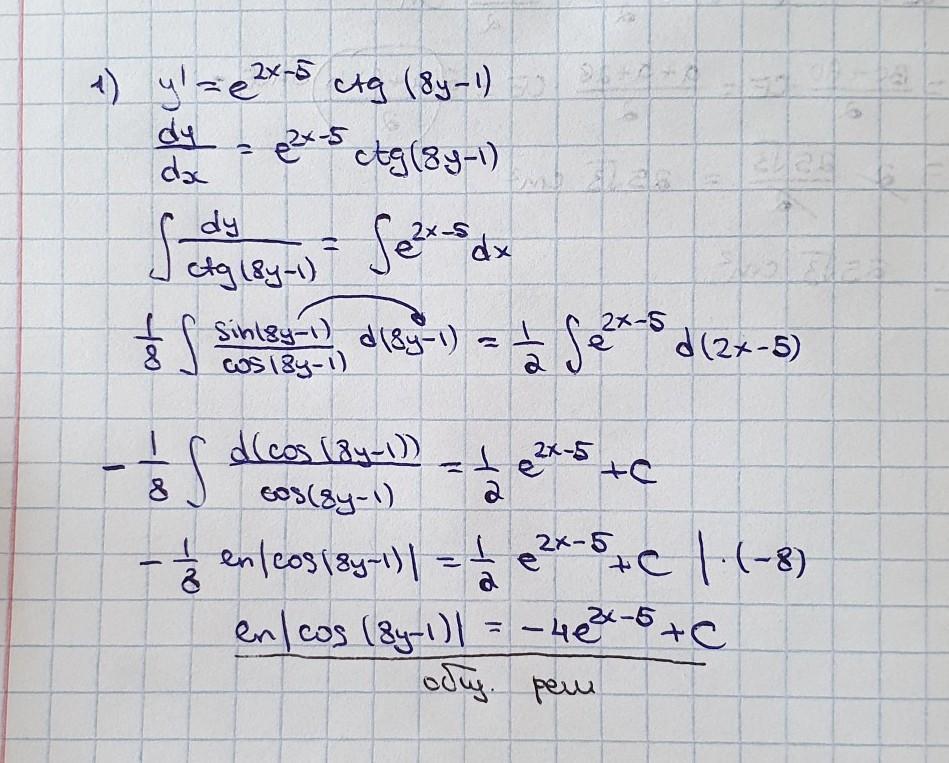 1) y' = e^{2x-5} ctg (8y-1)
dy/dx = e^{2x-5} ctg(8y-1)
∫ dy/ctg(8y-1) = ∫ e^{2x-5} dx
1/8 ∫ sin(8y-1)/cos(8y-1) d(8y-1) = 1/2 ∫ e^{2x-5} d(2x-5)
- 1/8 ∫ d(cos(8y-1))/cos(8y-1) = 1/2 e^{2x-5} + C
- 1/8 ln|cos(8y-1)| = 1/2 e^{2x-5} + C | ·(-8)
ln|cos (8y-1)| = -4e^{2x-5} + C
общ. реш